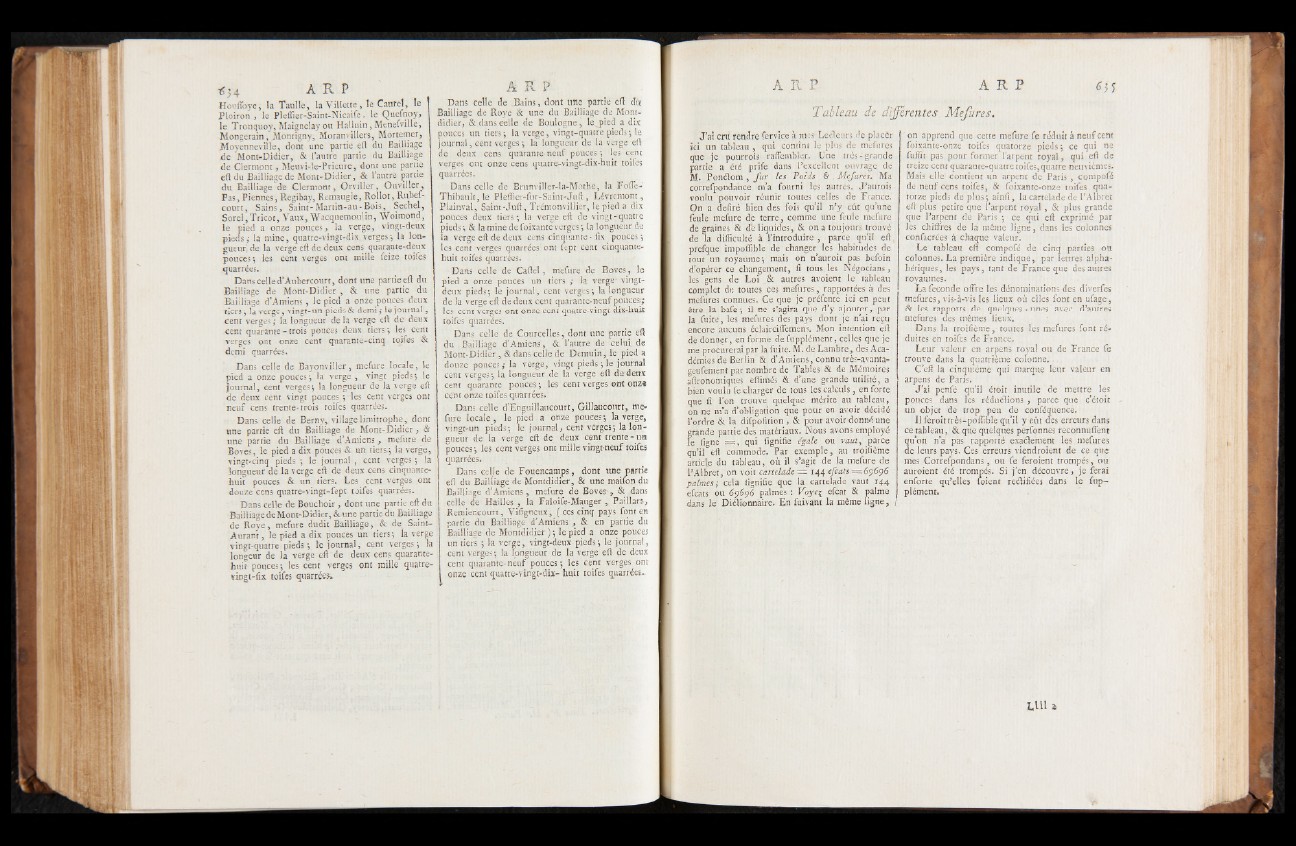 634 A R P
Houssoye, la Taulle, la Villette, le Cantel, le
Ploiron, le Plessier-Saint-Nicaise, le Quesnoy,
le Tronquoy, Maignelay ou Halluin, Menesville,
Mongerain, Montigny, Moranvillers, Mortemer,
Moyenneville, dont une partie est du Bailliage
de Mont-Didier, & l'autre partie du Bailliage
de Clermont, Meuvi-le-Prieure, dont une partie
est du Bailliage de Mont-Didier, & l'autre partie
du Bailliage de Clermont, Orviller, Onviller,
Pas, Piennes, Regibay, Remaugie, Rollot, Rubes-
court, Sains, Saint-Martin-au-Bois, Sechel,
Sorel, Tricot, Vaux, Wacquemoulin, Woimond,
le pied a onze pouces, la verge, vingt-deux
pieds; la mine, quatre-vingt-dix verges; la lon-
gueur de la verge est de deux cens quarante-deux
pouces; les cent verges ont mille seize toises
quarrées.
Dans celle d'Aubercourt, dont une partie est du
Bailliage de Mont-Didier, & une partie du
Bailliage d'Amiens, le pied a onze pouces deux
tiers, la verge, vingt-un pieds & demi; le journal,
cent verges; la longueur de la verge est de deux
cent quarante-trois pouces deux tiers; les cent
verges ont onze cent quarante-cinq toises &
demi quarrées.
Dans celle de Bayonviller, mesure locale, le
pied a onze pouces; la verge, vingt pieds; le
journal, cent verges; la longueur de la verge est
de deux cent vingt pouces; les cent verges ont
neuf cens trente-trois toises quarrées.
Dans celle de Berny, village limitrophe, dont
une partie est du Bailliage de Mont-Didier, &
une partie du Bailliage d'Amiens, mesure de
Boves, le pied a dix pouces & un tiers; la verge,
vingt-cinq pieds; le journal, cent verges; la
longueur de la verge est de deux cens cinquante-
huit pouces & un tiers. Les cent verges ont
douze cens quatre-vingt-sept toises quarrées.
Dans celle de Bouchoir, dont une partie est du
Bailliage de Mont-Didier, & une partie du Bailliage
de Roye, mesure dudit Bailliage, & de Saint-
Aurant, le pied a dix pouces un tiers; la verge
vingt-quatre pieds; le journal, cent verges; la
longeur de la verge est de deux cens quarante-
huit pouces; les cent verges ont mille quatre-
vingt-six toises quarrées.
A R P
Dans celle de Bains, dont une partie est du
Bailliage de Roye & une du Bailliage de Mont-
didier, & dans celle de Boulogne, le pied a dix
pouces un tiers; la verge, vingt-quatre pieds; le
journal, cent verges; la longueur de la verge est
de deux cens quarante-neuf pouces; les cent
verges ont onze cens quatre-vingt-dix-huit toises
quarrées.
Dans celle de Brunviller-la-Mothe, la Fosse-
Thibault, le Plessier-sur-Saint-Just, Lévremont,
Plainval, Saint-Just, Trémonvillier, le pied a dix
pouces deux tiers; la verge est de vingt-quatre
pieds, & la mine de soixante verges; la longueur de
la verge est de deux cens cinquante-six pouces;
les cent verges quarrées ont sept cent cinquante-
huit toises quarrées.
Dans celle de Castel, mesure de Boves, le
pied a onze pouces un tiers; la verge vingt-
deux pieds; le journal, cent verges; la longueur
de la verge est de deux cent quarante-neuf pouces;
les cent verges ont onze cent quatre-vingt dix-huit
toises quarrées.
Dans celle de Courcelles, dont une partie est
du Bailliage d'Amiens, & l'autre de celui de
Mont-Didier, & dans celle de Demuin, le pied a
douze pouces; la verge, vingt pieds; le journal
cent verges; la longueur de la verge est de deux
cent quarante pouces; les cent verges ont onze
cent onze toises quarrées.
Dans celle d'Enguillaucourt, Gillaucourt, me-
sure locale, le pied a onze pouces; la verge,
vingt-un pieds; le journal, cent verges; la lon-
gueur de la verge est de deux cent trente-un
pouces; les cent verges ont mille vingt-neuf toises
quarrées.
Dans celle de Fouencamps, dont une partie
est du Bailliage de Montdidier, & une maison du
Bailliage d'Amiens, mesure de Boves, & dans
celle de Hailles, la Faloise-Mauger, Paillart,
Remiencourt, Visigneux, (ces cinq pays sont en
partie du Bailliage d'Amiens, & en partie du
Bailliage de Montdidier); le pied a onze pouces
un tiers; la verge, vingt-deux pieds; le journal,
cent verges; la longueur de la verge est de deux
cent quarante-neuf pouces; les cent verges ont
onze cent quatre-vingt-dix-huit toises quarrées.
A R P A R P 635
Tableau de différentes Mesures.
J'ai cru rendre service à mes Lecteurs de placer
ici un tableau, qui contînt le plus de mesures
que je pourrois rassembler. Une très-grande
partie a été prise dans l'excellent ouvrage de
M. Ponclom, sur les Poids & Mesures. Ma
correspondance m'a fourni les autres. J'aurois
voulu pouvoir réunir toutes celles de France.
On a desiré bien des fois qu'il n'y eût qu'une
seule mesure de terre, comme une seule mesure
de graines & de liquides, & on a toujours trouvé
de la difficulté à l'introduire, parce qu'il est
presque impossible de changer les habitudes de
tout un royaume; mais on n'auroit pas besoin
d'opérer ce changement, si tous les Négocians,
les gens de Loi & autres avoient le tableau
complet de toutes ces mesures, rapportées à des
mesures connues. Ce que je présente ici en peut
être la base; il ne s'agira que d'y ajouter, par
la suite, les mesures des pays dont je n'ai reçu
encore aucuns éclaircissemens. Mon intention est
de donner, en forme de supplément, celles que je
me procurerai par la suite. M. de Lambre, des Aca-
démies de Berlin & d'Amiens, connu très-avanta-
geusement par nombre de Tables & de Mémoires
astronomiques estimés & d'une grande utilité, a
bien voulu se charger de tous les calculs, en sorte
que si l'on trouve quelque mérite au tableau,
on ne m'a d'obligation que pour en avoir décidé
l'ordre & la disposition, & pour avoir donné une
grande partie des matériaux. Nous avons employé
le signe =, qui signifie égale ou vaut, parce
qu'il est commode. Par exemple, au troisième
article du tableau, où il s'agit de la mesure de
l'Albret, on voit cartelade = 144 escats = 69696
palmes; cela signifie que la cartelade vaut 144
escats ou 69696 palmes: Voyez escat & palme
dans le Dictionnaire. En suivant la même ligne,
on apprend que cette mesure se réduit à neuf cent
soixante-onze toises quatorze pieds; ce qui ne
suffit pas pour former l'arpent royal, qui est de
treize cent quarante-quatre toises, quatre neuvièmes.
Mais elle contient un arpent de Paris, composé
de neuf cens toises, & soixante-onze toises qua-
torze pieds de plus; ainsi, la cartelade de l'Albret
est plus petite que l'arpent royal, & plus grande
que l'arpent de Paris; ce qui est exprimé par
les chiffres de la même ligne, dans les colonnes
consacrées à chaque valeur.
Le tableau est composé de cinq parties ou
colonnes. La première indique, par lettres alpha-
bétiques, les pays, tant de France que des autres
royaumes.
La seconde offre les dénominations des diverses
mesures, vis-à-vis les lieux où elles sont en usage,
& les rapports de quelques-unes avec d'autres
mesures des mêmes lieux.
Dans la troisième, toutes les mesures sont ré-
duites en toises de France.
Leur valeur en arpens royal ou de France se
trouve dans la quatrième colonne.
C'est la cinquième qui marque leur valeur en
arpens de Paris.
J'ai pensé qu'il étoit inutile de mettre les
pouces dans les réductions, parce que c'étoit
un objet de trop peu de conséquence.
Il seroit très-possible qu'il y eût des erreurs dans
ce tableau, & que quelques personnes reconnussent
qu'on n'a pas rapporté exactement les mesures
de leurs pays. Ces erreurs viendroient de ce que
mes Correspondans, ou se seroient trompés, ou
auroient été trompés. Si j'en découvre, je ferai
ensorte qu'elles soient rectifiées dans le sup-
plément.
Llll 2